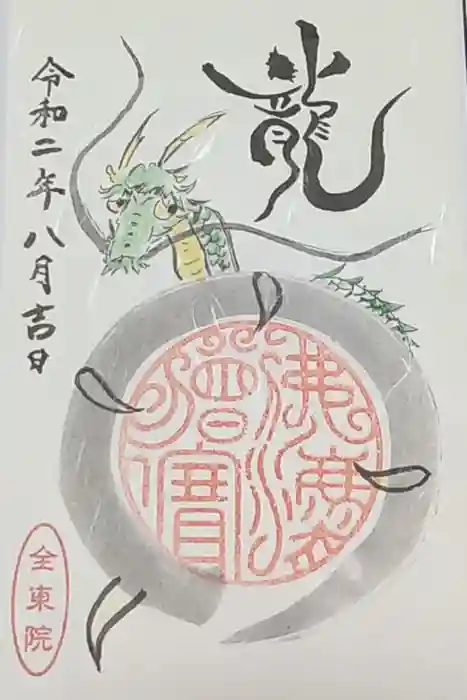 龍
佛灋
僧寶
令和二年八月吉日
全東院